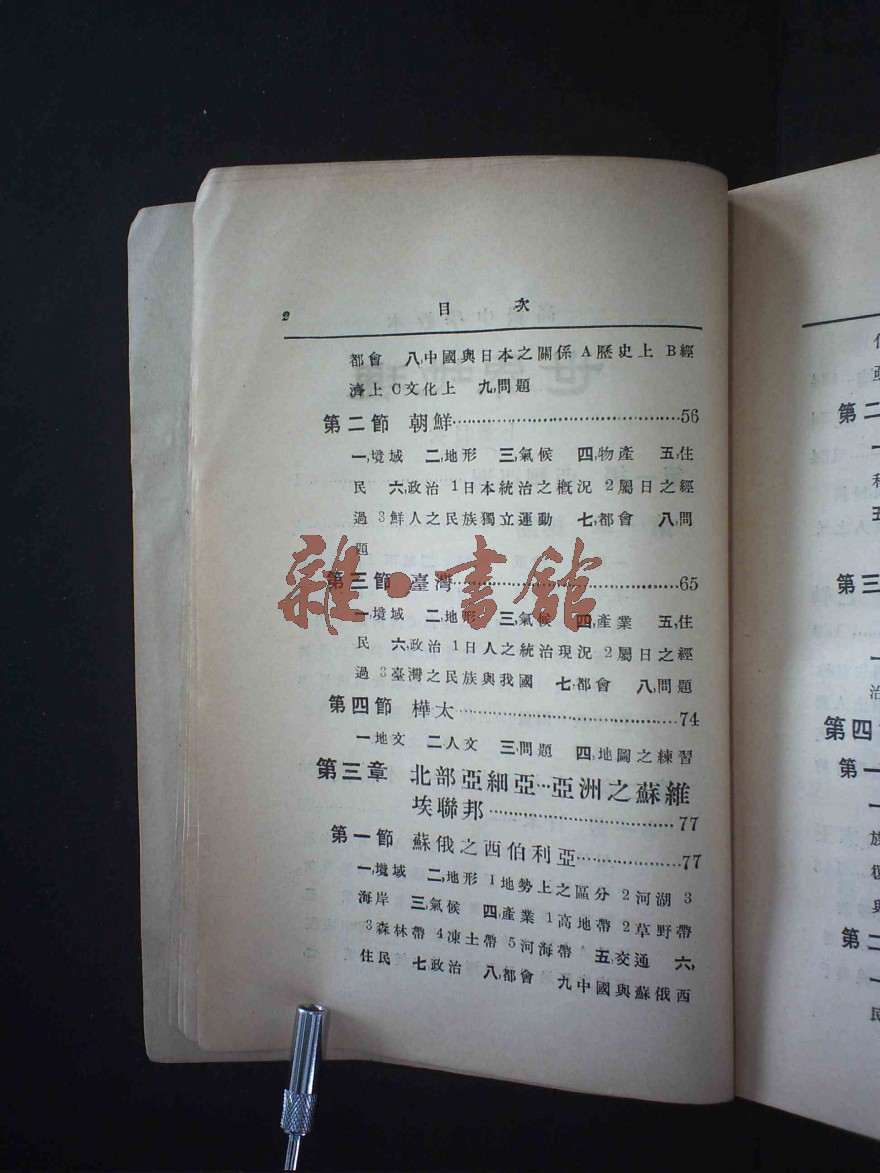 2
目 次
都會 八,中國與日本之關係 A歷史上 B經
濟上 C文化上 九,問題
第二節 朝鮮……………………56
一,境域 二,地形 三,氣候 四,物產 五,住
民 六,政治 1日本統治之概況 2屬日之經
過 3鮮人之民族獨立運動 七,都會 八,問
題
第三節 臺灣……………………65
一,境域 二,地形 三,氣候 四,產業 五,住
民 六,政治 1日人之統治現況 2屬日之經
過 3臺灣之民族與我國 七,都會 八,問題
第四節 樺太……………………74
一,地文 二,人文 三,問題 四,地圖之練習
第三章 北部亞細亞…亞洲之蘇維
埃聯邦……………………77
第一節 蘇俄之西伯利亞……………77
一,境域 二,地形 1地勢上之區分 2河湖 3
海岸 三,氣候 四,產業 1高地帶 2草野帶
3森林帶 4凍土帶 5河海帶 五,交通 六,
住民 七,政治 八,都會 九中國與蘇俄西
雜·書館
第二
一
五
第三
一
治
第四
第一
一
第二
一
民